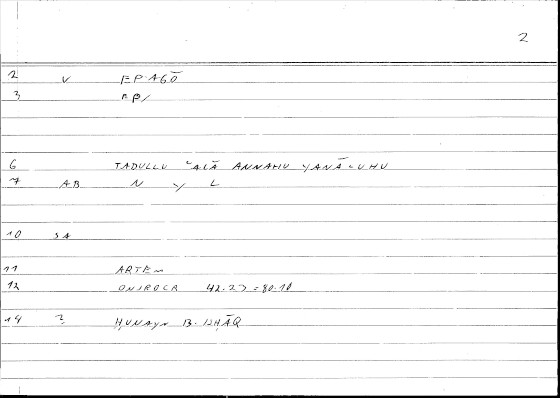 2
2 V EPAGŌ
3 EP/
6 TADULLU ʿALĀ ANNAHU YANĀLUHU
7 AB N Y L
10 SA
11 ARTEM
12 ONIROCR 42.23 = 80.10
14 ? ḤUNAYN B. ISḤĀQ